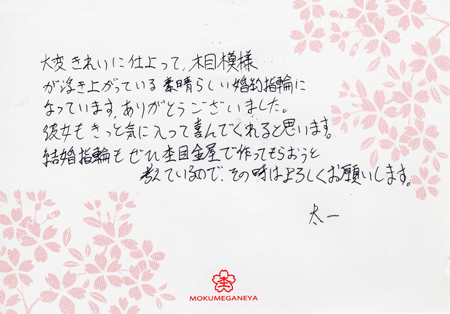 大変きれいに仕上って、木目模様
が浮き上がっている素晴らしい婚約指輪に
なっています。ありがとうございました。
彼女もきっと気に入って喜んでくれると思います。
結婚指輪もぜひ杢目金屋で作ってもらおうと
考えているので、その時はよろしくお願いします。
太一
杢
MOKUMEGANEYA